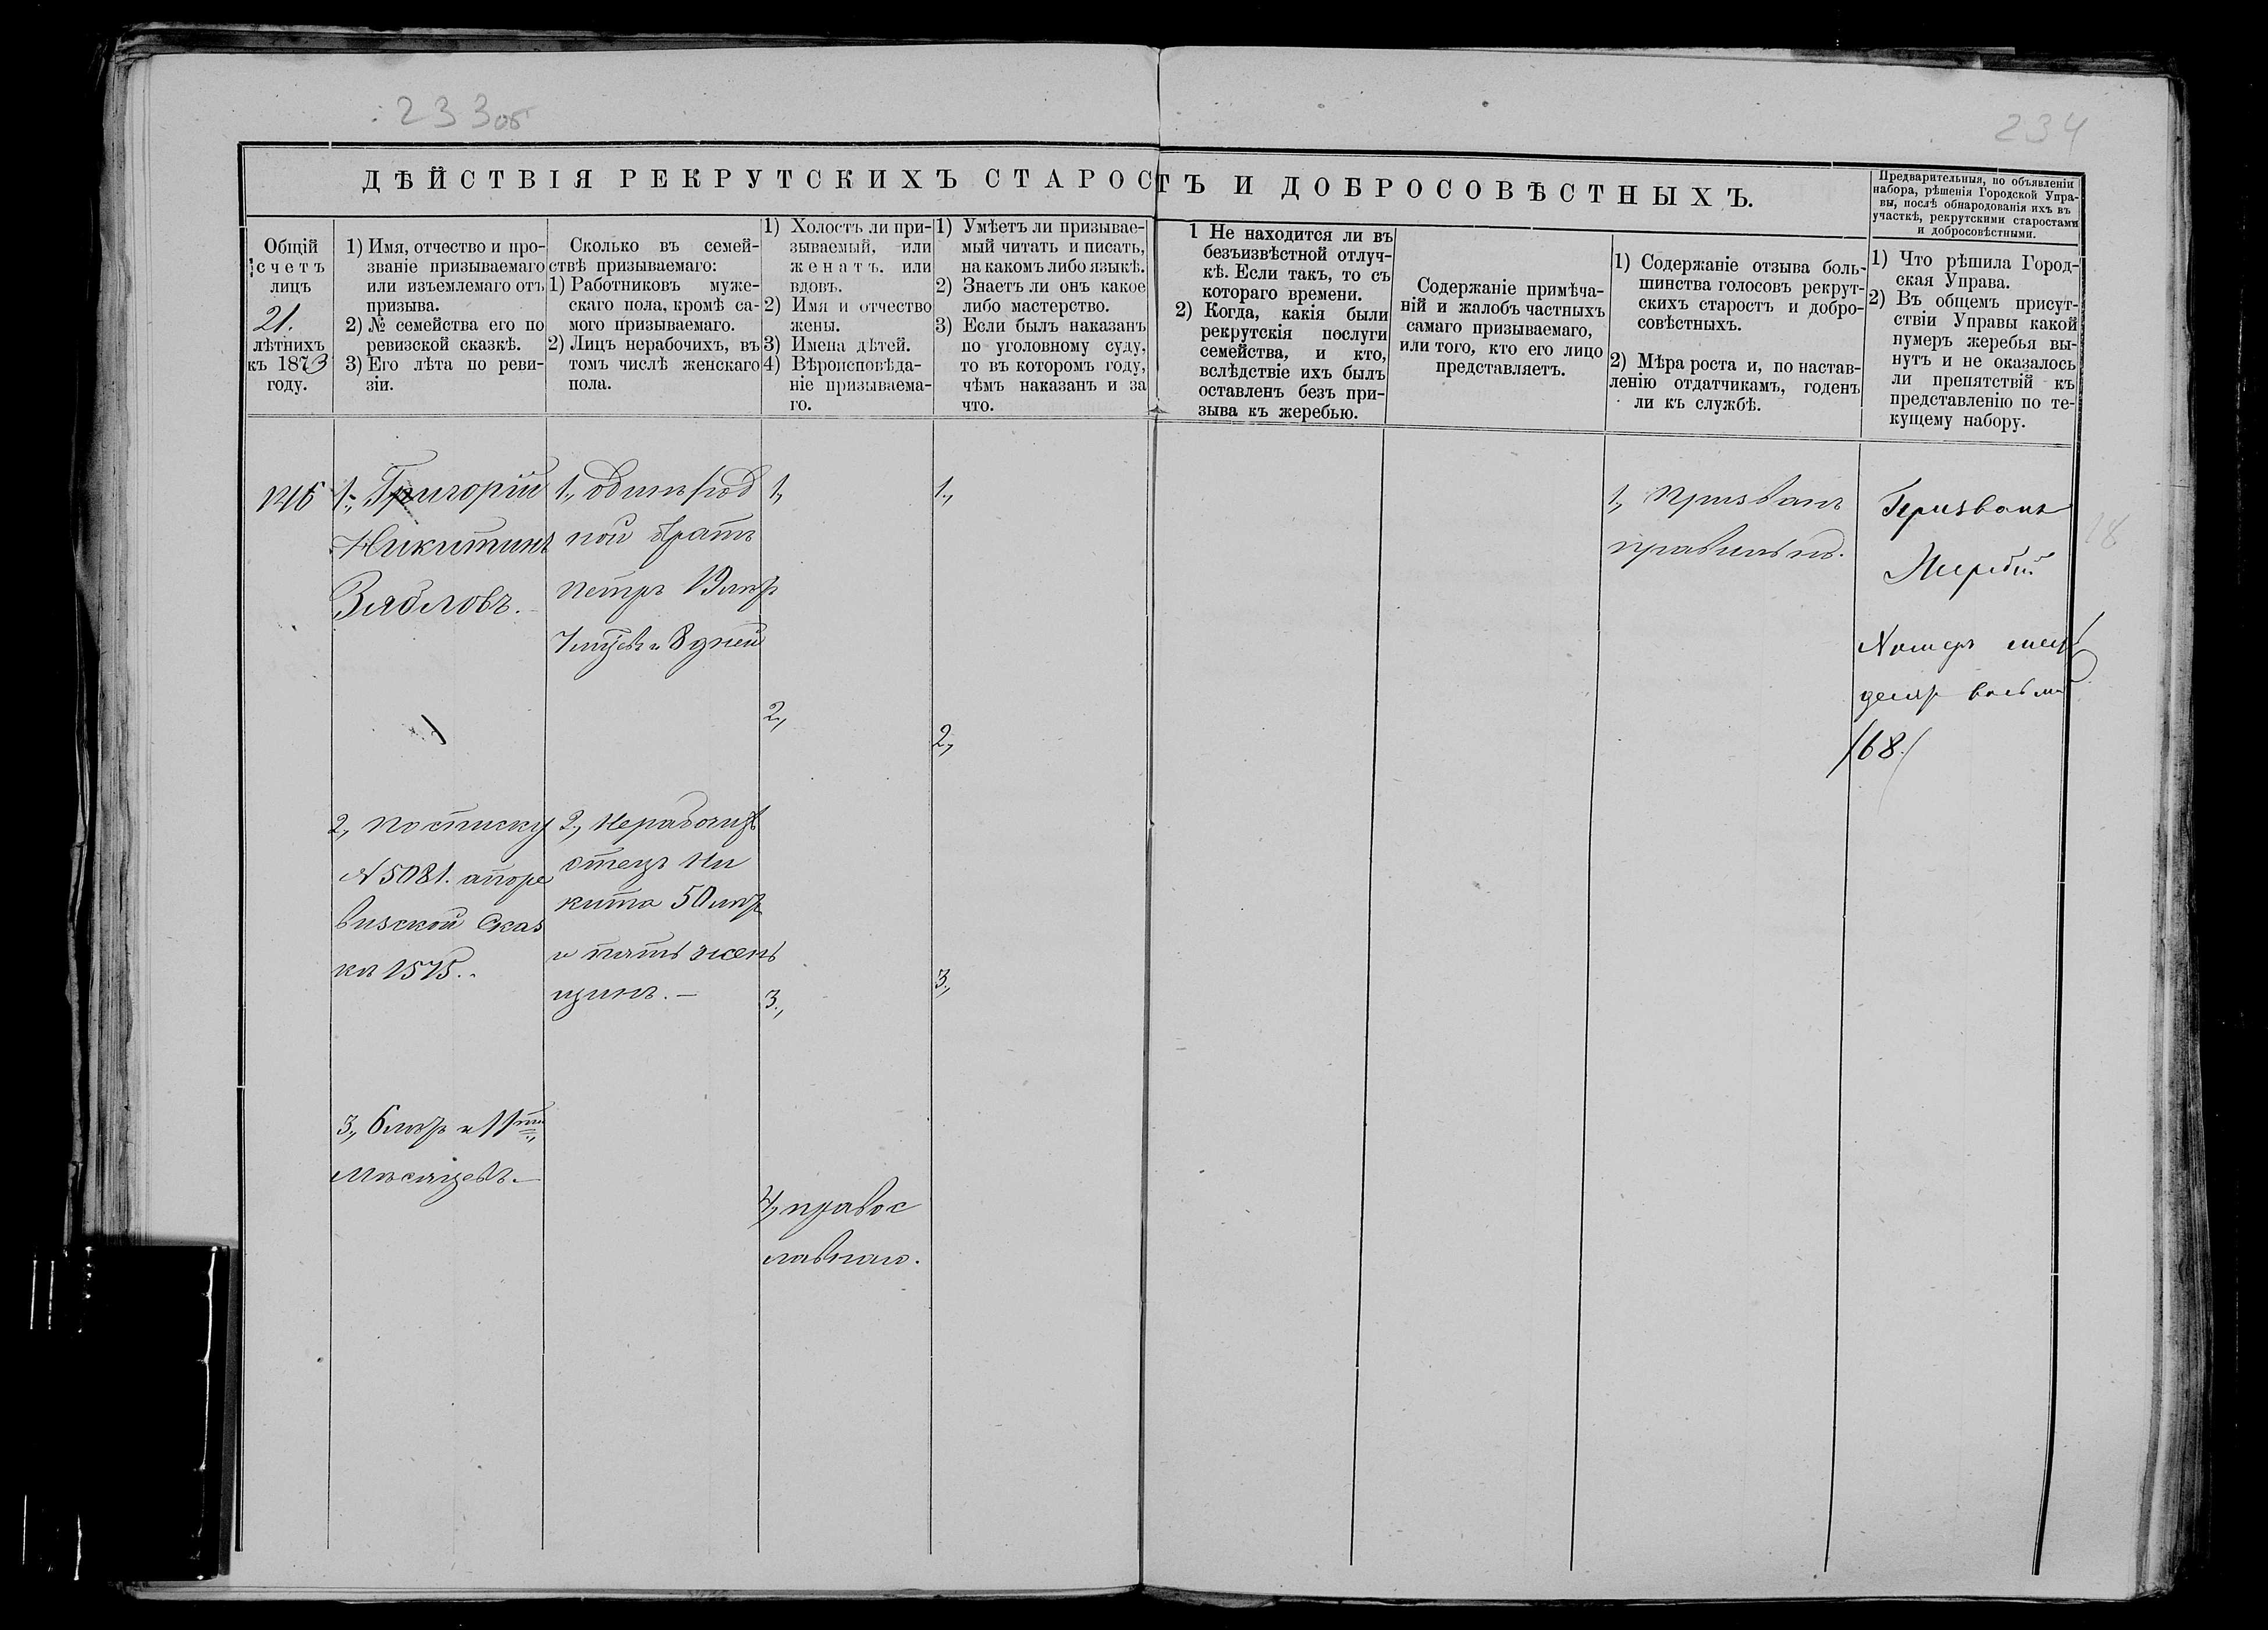 233об
234
ДѢЙСТВІЯ РЕКРУТСКИХЪ СТАРОСТЪ И ДОБРОСОВѢСТНЫХЪ.
Предварительныя, по объявленіи
набора, рѣшенія Городской Упра-
вы, послѣ обнародованія ихъ въ
участкѣ, рекрутскими старостами
и добросовѣстными.
Общій
счетъ
лицъ
21.
лѣтнихъ
къ 1873
году.
1) Имя, отчество и про-
званіе призываемаго
или изъемлемаго отъ
призыва.
2) № семейства его по
ревизской сказкѣ.
3) Его лѣта по реви-
зіи.
Сколько въ семей-
ствѣ призываемаго:
1) Работниковъ муже-
скаго пола, кромѣ са-
мого призываемаго.
2) Лицъ нерабочихъ, въ
томъ числѣ женскаго
пола.
1) Холостъ ли при-
зываемый, или
женатъ. или
вдовъ.
2) Имя и отчество
жены.
3) Имена дѣтей.
4) Вѣроисповѣда-
ніе призываема-
го.
1) Умѣетъ ли призывае-
мый читать и писать,
на какомъ либо языкѣ.
2) Знаетъ ли онъ какое
либо мастерство.
3) Если былъ наказанъ
по уголовному суду,
то въ которомъ году,
чѣмъ наказанъ и за
что.
1 Не находится ли въ
безъизвѣстной отлуч-
кѣ. Если такъ, то съ
котораго времени.
2) Когда, какія были
рекрутскія послуги
семейства, и кто,
вслѣдствіе ихъ былъ
оставленъ безъ при-
зыва къ жеребью.
Содержаніе примѣча-
ній и жалобъ частныхъ
самаго призываемаго,
или того, кто его лицо
представляетъ.
1) Содержаніе отзыва боль-
шинства голосовъ рекрут-
скихъ старостъ и добро-
совѣстныхъ.
2) Мѣра роста и, по настав-
ленію отдатчикамъ, годенъ
ли къ службѣ.
1) Что рѣшила Город-
ская Управа.
2) Въ общемъ присут-
ствіи Управы какой
нумеръ жеребья вы-
нутъ и не оказалось
ли препятствій къ
представленію по те-
кущему набору.
146
1., Григорій
Никитинъ
Зябловъ.
2., по списку
№ 5081. а по ре
визской Сказ
кѣ 1575.
3., 6 лѣтъ и 11ти
Мѣсяцевъ.
1., одинъ род
ной братъ
Петръ 19 лѣтъ
7 мцевъ и 8 дней
2., Нерабочихъ
отецъ Ни
кита 50 лѣтъ
и пять жен
щинъ.
1.,
2.,
3.,
4., правос
лавнаго.
1.,
2.,
3.,
1., Призванъ
правильно.
Призванъ
Жеребій
Номеръ шесть
десят восьмой
/68./
18